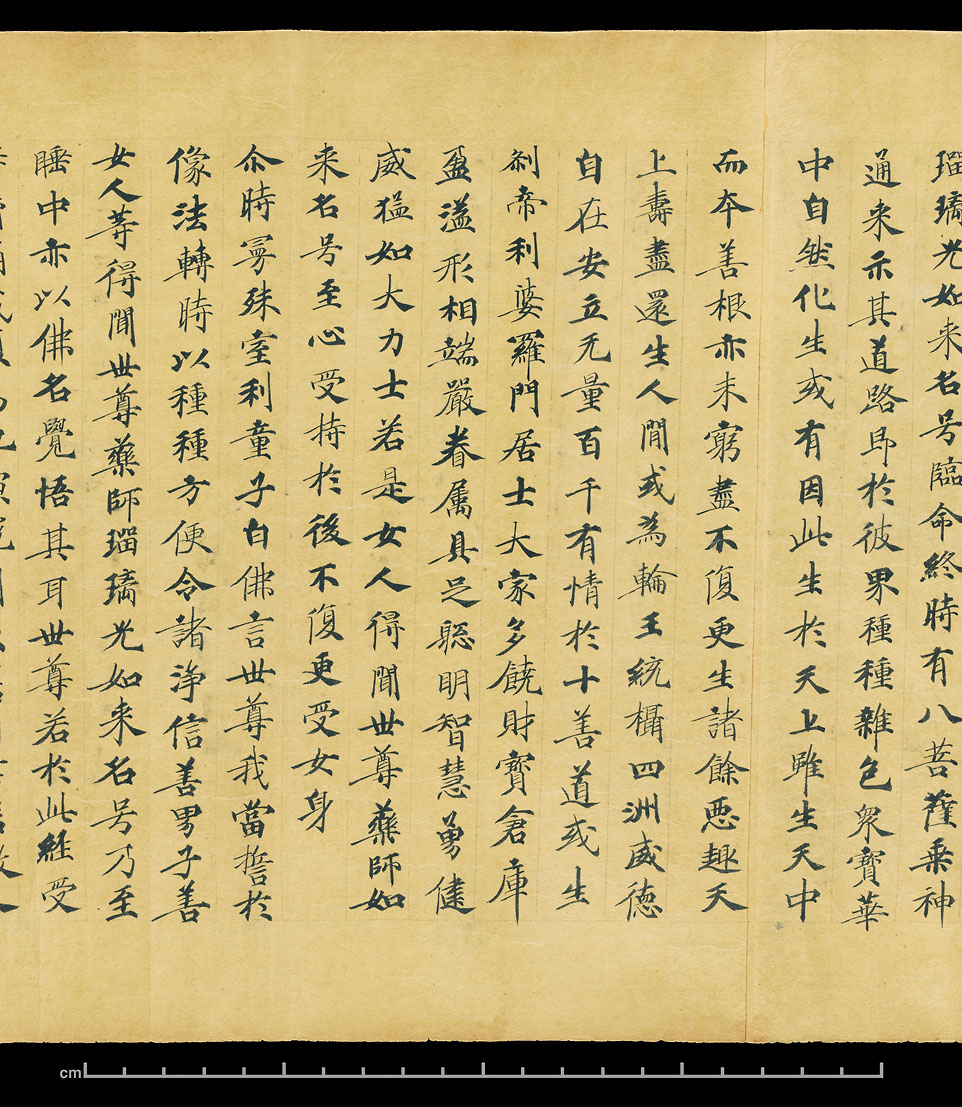 瑠璃光如来名号臨命終時有八菩薩乘神
通来示其道路即於彼界種種雜色衆寶華
中自然化生或有因此生於天上雖生天中
而夲善根亦未窮盡不復更生諸餘惡趣天
上壽盡還生人間或為輪王統攝四洲威德
自在安立无量百千有情於十善道或生
刹帝利婆羅門居士大家多饒財寶倉庫
盈溢形相端嚴眷属具足聡明智慧勇健
威猛如大力士若是女人得聞世尊藥師如
来名号至心受持於後不復更受女身
尒時曼殊室利童子白佛言世尊我當誓於
像法轉時以種種方便令諸淨信善男子善
女人䓁得聞世尊藥師瑠璃光如来名号乃至
睡中亦以佛名覺悟其耳世尊若於此經受
cm